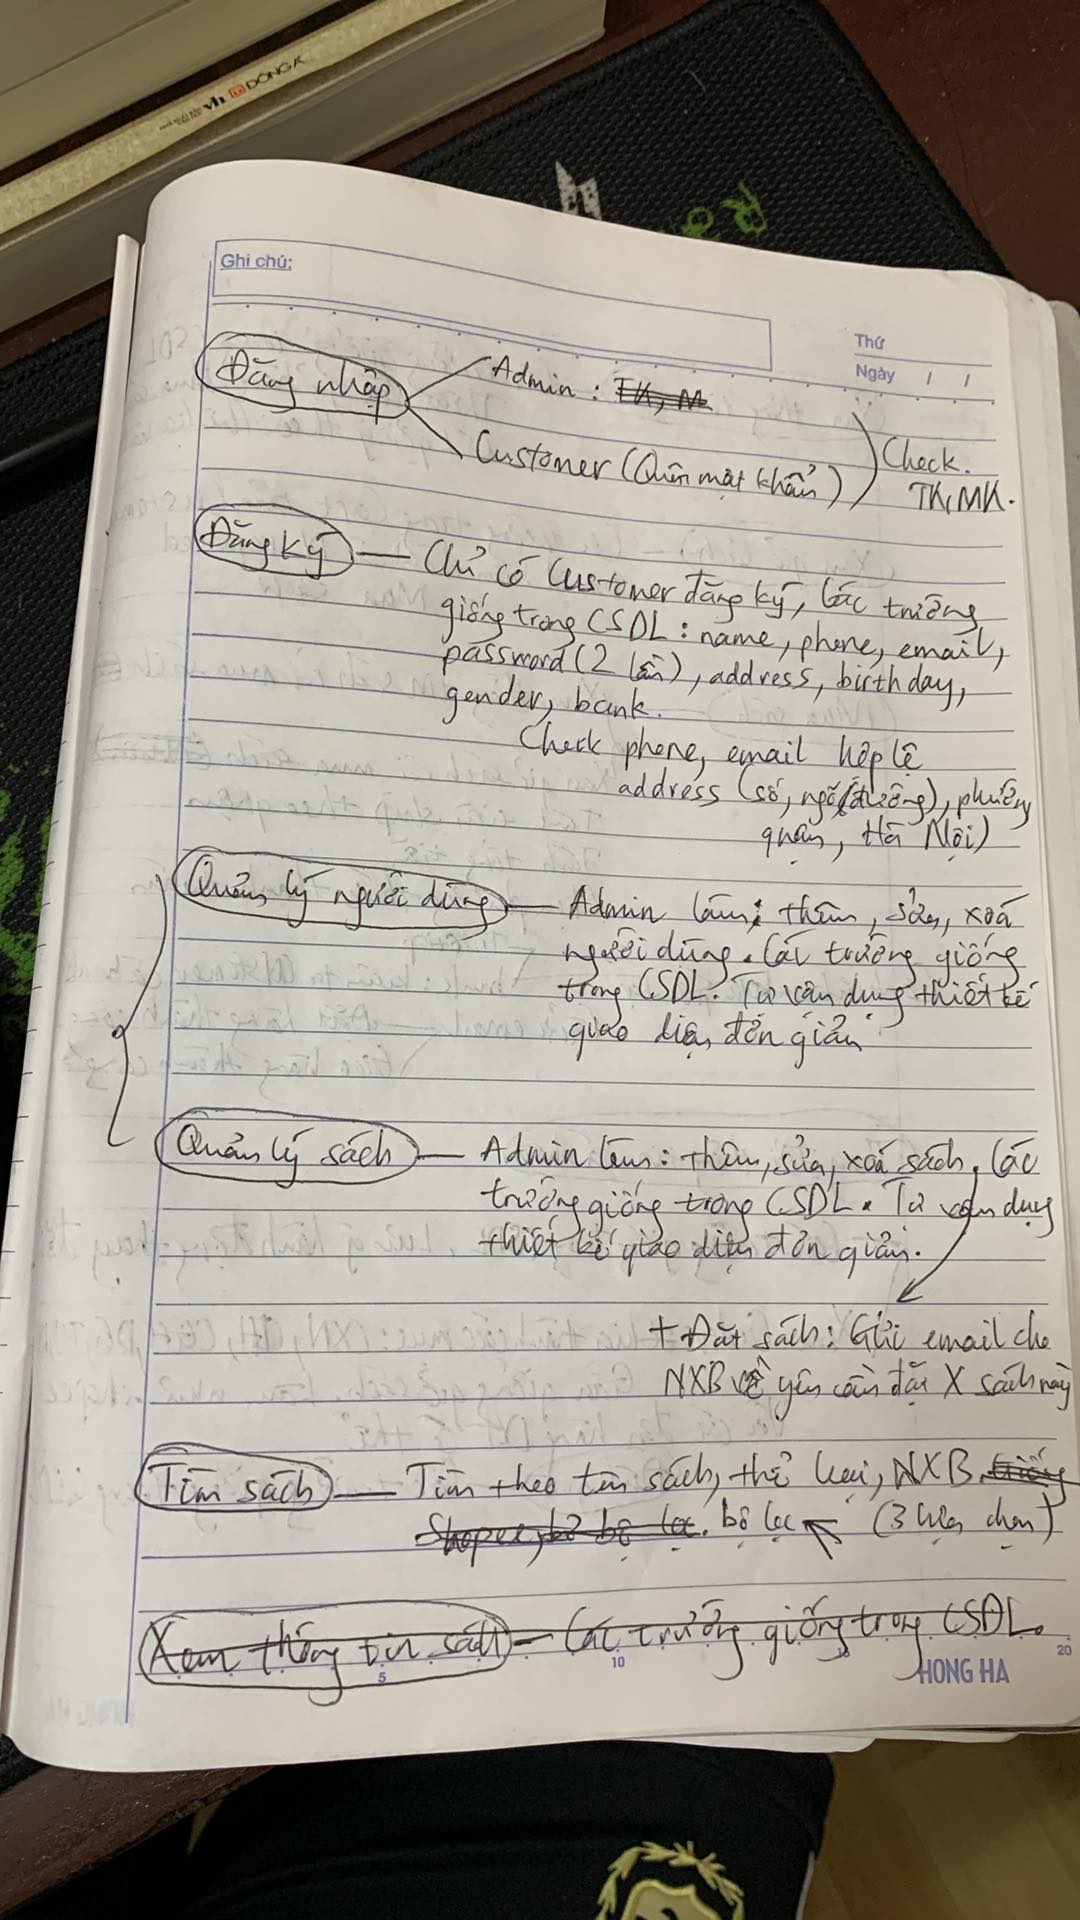 ĐÔNG A
Ghi chú:
Thứ
Ngày / /
Đăng nhập
Admin : TK, M
Customer (Quên mật khẩu)
Check.
TK, MK.
Đăng ký — Chỉ có Customer đăng ký, các trường
giống trong CSDL : name, phone, email,
password (2 lần), address, birthday,
gender, bank.
Check phone, email hợp lệ
address (số, ngõ (đường), phường
quận, Hà Nội)
Quản lý người dùng — Admin làm: thêm, sửa, xoá
người dùng. Các trường giống
trong CSDL. Tự vận dụng thiết kế
giao diện đơn giản
Quản lý sách — Admin làm: thêm, sửa, xoá sách. Các
trường giống trong CSDL. Tự vận dụng
thiết kế giao diện đơn giản.
+ Đặt sách: Gửi email cho
NXB về yêu cầu đặt X sách này
Tìm sách — Tìm theo tên sách, thể loại, NXB giống
Shopee, bộ lọc. bộ lọc (3 lựa chọn)
Xem thông tin sách — Các trường giống trong CSDL.
5 10 15 20
HONG HA